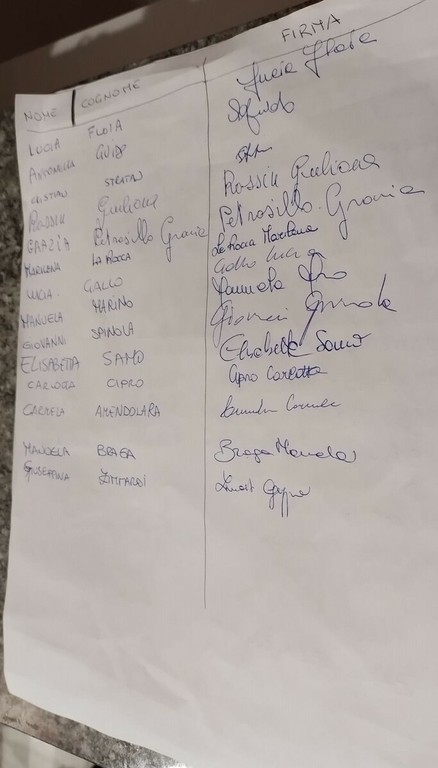 NOME COGNOME FIRMA
LUCIA FLOIA Lucia Floia
ANTONELLA GUIDO
CRISTIAN STRATAN
Rossin Giuliana Rossin Giuliana
GRAZIA Petrosillo Grazia Petrosillo Grazia
MARILENA LA ROCCA La Rocca Marilena
LUCIA GALLO Gallo Lucia
MANUELA MARINO
GIOVANNI SPINOLA Giovanni Spinola
ELISABETTA SAMO Elisabetta Samo
CARLOTTA CIPRO Cipro Carlotta
CARMELA AMENDOLARA
MANUELA BRAGA Braga Manuela
GIUSEPPINA